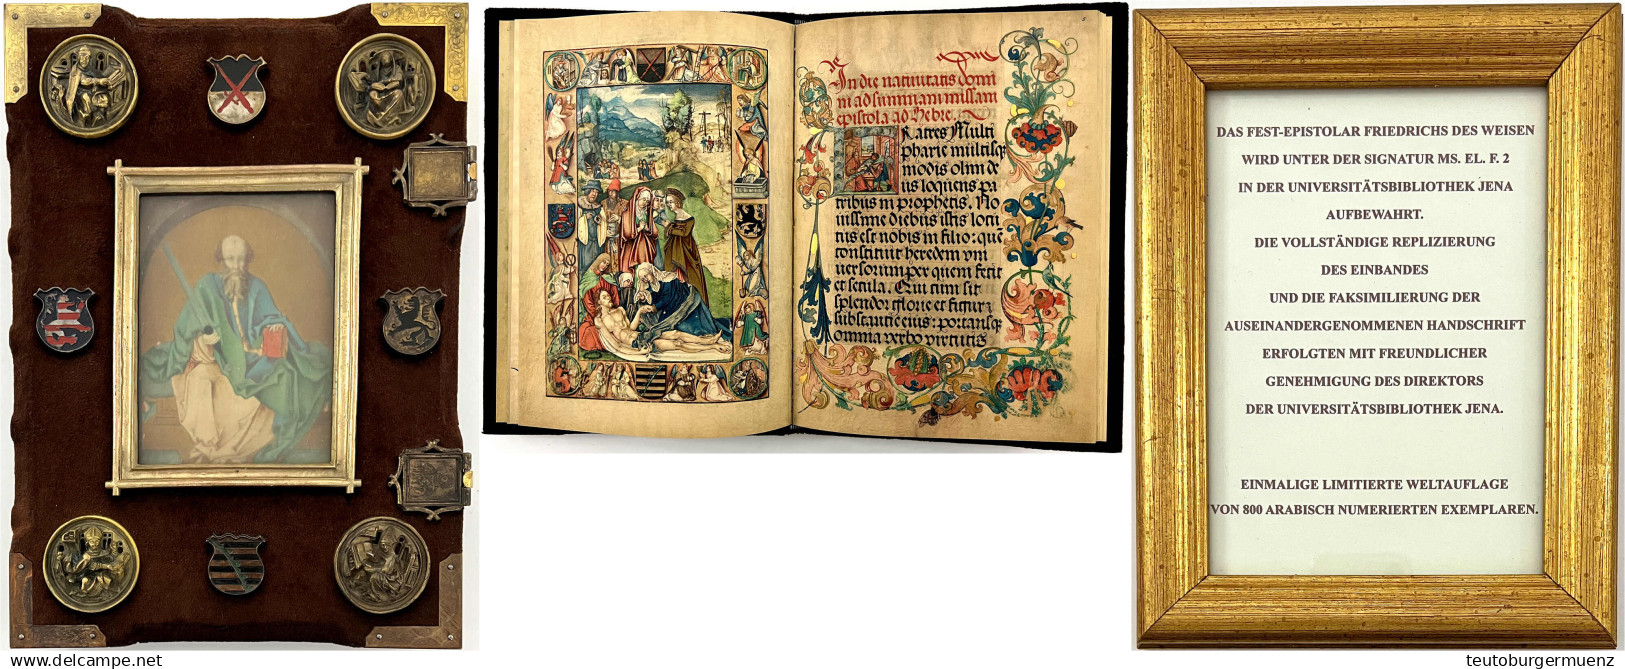 5
In die nativitatis domi
ni ad summam missam
epistola ad Hebre.
Fratres Multi
pharie multisq
modis olim de
us loquens pa
tribus in prophetis. No
uissime diebus istis locu
tus est nobis in filio: que
constituit heredem vni
uersorum per quem fecit
et secula. Qui cum sit
splendor glorie et figur
substantie eius: portansq
omnia verbo virtutis
DAS FEST-EPISTOLAR FRIEDRICHS DES WEISEN
WIRD UNTER DER SIGNATUR MS. EL. F. 2
IN DER UNIVERSITÄTSBIBLIOTHEK JENA
AUFBEWAHRT.
DIE VOLLSTÄNDIGE REPLIZIERUNG
DES EINBANDES
UND DIE FAKSIMILIERUNG DER
AUSEINANDERGENOMMENEN HANDSCHRIFT
ERFOLGTEN MIT FREUNDLICHER
GENEHMIGUNG DES DIREKTORS
DER UNIVERSITÄTSBIBLIOTHEK JENA.
EINMALIGE LIMITIERTE WELTAUFLAGE
VON 800 ARABISCH NUMERIERTEN EXEMPLAREN.
© www.delcampe.net
teutoburgermuenz